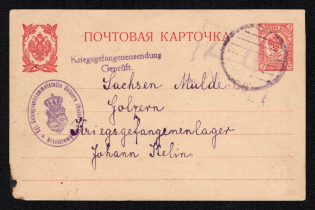 ПОЧТОВАЯ КАРТОЧКА
Kriegsgefangenensendung
Geprüft.
Sachsen Mulde
Golzern
Kriegsgefangenenlager
Johann Kelin